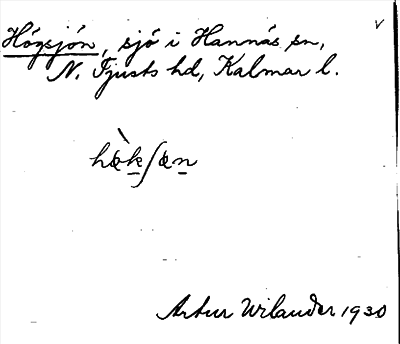 Högsjön, sjö i Hannäs sn,
N. Tjusts hd, Kalmar l.
hö̀kʃön
Artur Wilander 1930